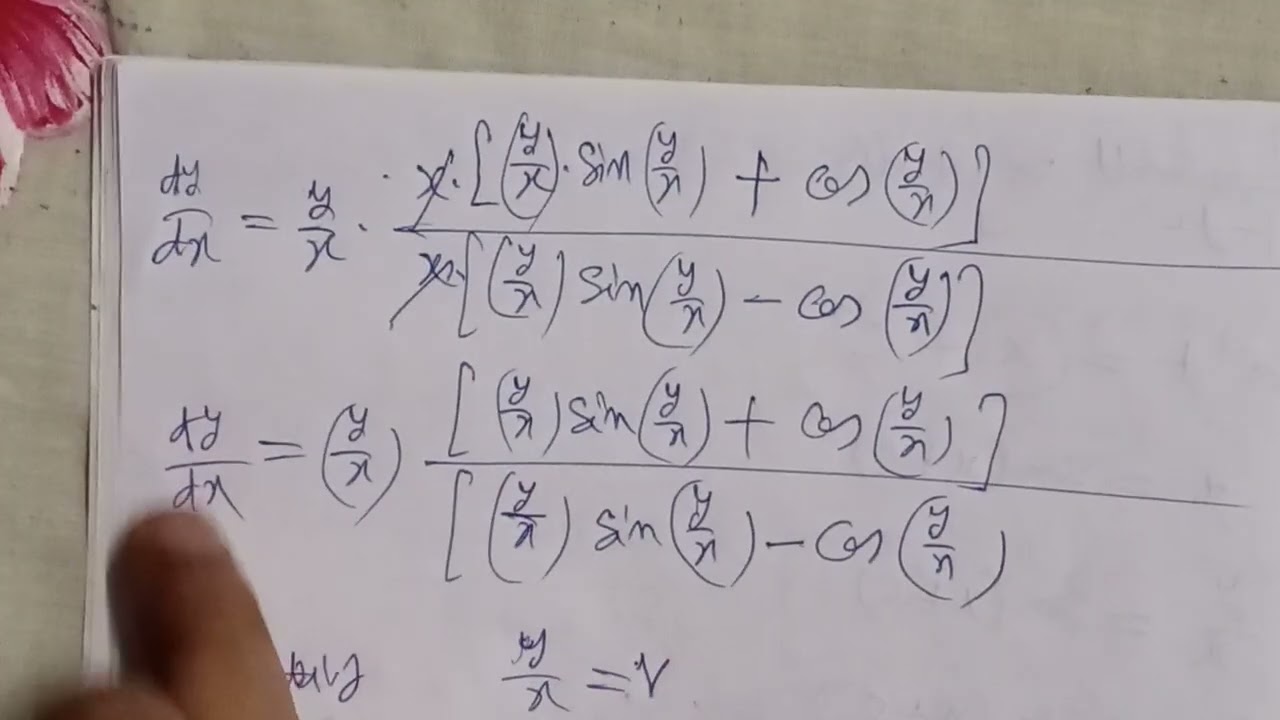 dy/dx = y/x · x·[(y/x)·sin(y/x) + cos(y/x)] / x·[(y/x) sin(y/x) - cos(y/x)]
dy/dx = (y/x) [(y/x) sin(y/x) + cos(y/x)] / [(y/x) sin(y/x) - cos(y/x)
y/x = v